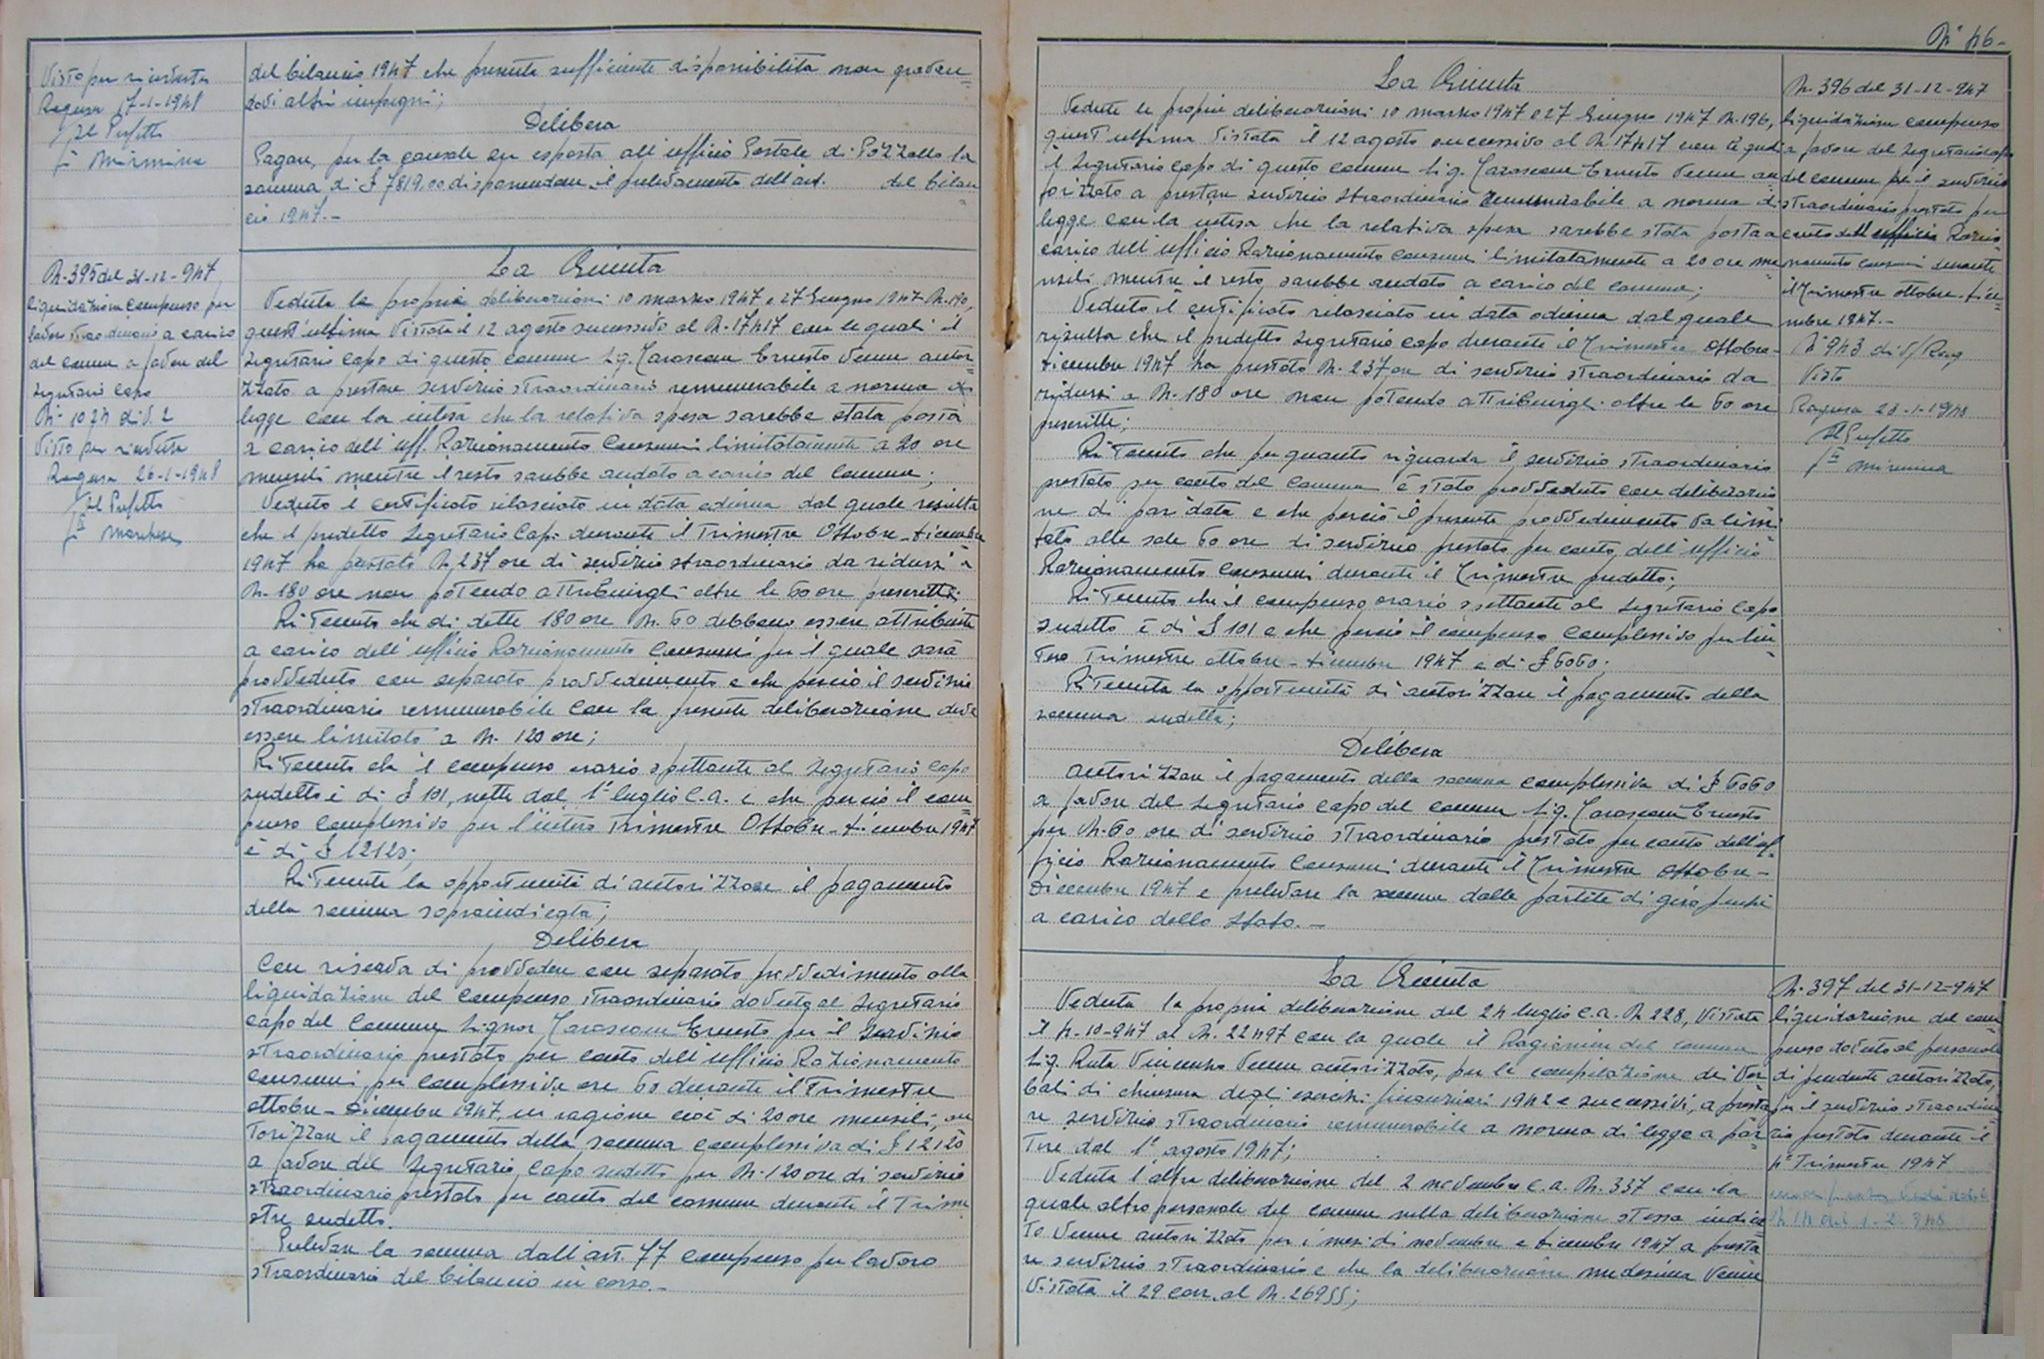 Visto per ricevuta
Ragusa 17-1-1948
Il Prefetto
F° Mirmina
del bilancio 1947 che presenta sufficiente disponibilità non gravan=
dovi altri impegni;
Delibera
Pagare, per la causale su esposta all'ufficio Postale di Pozzallo la
somma di £ 7819,00 disponendone il prelevamento dell'art. del bilan
cio 1947.-
N. 395 del 31-12-947
liquidazione compenso per
lavoro straordinario a carico
del comune a favore del
Segretario Capo
N° 1074 div. 2
Visto per ricevuta
Ragusa 26-1-1948
Il Prefetto
F° Marchese
La Giunta
Vedute le proprie deliberazioni 10 marzo 1947 e 27 Giugno 1947 N. 190,
quest'ultima Vistata il 12 agosto successivo al N. 17417 con le quali il
Segretario Capo di questo comune Sig. Carascon Ernesto venne autor=
izzato a prestare servizio straordinario remunerabile a norma di
legge con la intesa che la relativa spesa sarebbe stata posta
a carico dell'Uff. Razionamento Consumi limitatamente a 20 ore
mensili mentre il resto sarebbe andato a carico del Comune;
Veduto il certificato rilasciato in data odierna dal quale risulta
che il predetto Segretario Capo durante il Trimestre Ottobre-dicembre
1947 ha prestato N. 237 ore di servizio straordinario da ridursi a
N. 180 ore non potendo attribuirgli oltre le 60 ore prescritte;
Ritenuto che di dette 180 ore N. 60 debbono essere attribuite
a carico dell'ufficio Razionamento Consumi per il quale sarà
provveduto con separato provvedimento e che perciò il servizio
straordinario remunerabile con la presente deliberazione deve
essere limitato a N. 120 ore;
Ritenuto che il compenso orario spettante al Segretario Capo
sudetto è di £ 101, nette dal 1° luglio c.a. e che perciò il com
penso complessivo per l'intero Trimestre Ottobre-dicembre 1947
è di £ 12120;
Ritenuta la opportunità di autorizzare il pagamento
della somma sopraindicata;
Delibera
Con riserva di provvedere con separato provvedimento alla
liquidazione del compenso straordinario dovuto al Segretario
capo del Comune Signor Carascon Ernesto per il servizio
straordinario prestato per conto dell'Ufficio Razionamento
Consumi per complessive ore 60 durante il Trimestre
ottobre-Dicembre 1947 in ragione cioè di 20 ore mensili, au
torizzare il pagamento della somma complessiva di £ 12120
a favore del Segretario Capo sudetto per N. 120 ore di servizio
straordinario prestato per conto del comune durante il Trime
stre sudetto.
Prelevare la somma dall'art. 77 compenso per lavoro
straordinario del bilancio in corso.-
N° 46-
La Giunta
Vedute le proprie deliberazioni 10 marzo 1947 e 27 Giugno 1947 N. 196,
quest'ultima Vistata il 12 agosto successivo al N. 17417 con le quali
il Segretario Capo di questo comune Sig. Carascon Ernesto venne au
torizzato a prestare servizio straordinario remunerabile a norma di
legge con la intesa che la relativa spesa sarebbe stata posta a
carico dell'Ufficio Razionamento Consumi limitatamente a 20 ore me=
nsili mentre il resto sarebbe andato a carico del comune;
Veduto il certificato rilasciato in data odierna dal quale
risulta che il predetto Segretario Capo durante il Trimestre Ottobre-
dicembre 1947 ha prestato N. 237 ore di servizio straordinario da
ridursi a N. 180 ore non potendo attribuirgli oltre le 60 ore
prescritte;
Ritenuto che per quanto riguarda il servizio straordinario
prestato per conto del Comune è stato provveduto con deliberazio
ne di pari data e che perciò il presente provvedimento va limi
tato alle sole 60 ore di servizio prestato per conto dell'Ufficio
Razionamento Consumi durante il Trimestre predetto;
Ritenuto che il compenso orario spettante al Segretario Capo
sudetto è di £ 101 e che perciò il compenso complessivo per l'in=
tero Trimestre ottobre-dicembre 1947 è di £ 6060;
Ritenuta la opportunità di autorizzare il pagamento della
somma sudetta;
Delibera
autorizzare il pagamento della somma complessiva di £ 6060
a favore del Segretario Capo del comune Sig. Carascon Ernesto
per N. 60 ore di servizio straordinario prestato per conto dell'Uf=
ficio Razionamento Consumi durante il Trimestre Ottobre-
Dicembre 1947 e prelevare la somma dalle partite di giro
a carico dello Stato.-
N. 396 del 31-12-947
liquidazione compenso
a favore del Segretario capo
del comune per il servizio
straordinario prestato per
conto dell'ufficio Razio=
namento consumi durante
il Trimestre ottobre-dice=
mbre 1947.-
N° 943 div/Rag
Visto
Ragusa 28-1-1948
Il Prefetto
F° Mirmina
La Giunta
Veduta la propria deliberazione del 24 luglio c.a. N. 228, Vistata
il 4-10-947 al N. 22497 con la quale il Ragioniere del comune
Sig. Ruta Vincenzo venne autorizzato, per la compilazione dei Ver
bali di chiusura degli esercizi finanziari 1942 e successivi, a presta
re servizio straordinario remunerabile a norma di legge a par=
tire dal 1° agosto 1947;
Veduta l'altra deliberazione del 2 novembre c.a. N. 337 con la
quale altro personale del comune nella deliberazione stessa indica
to venne autorizzato per i mesi di novembre e dicembre 1947 a presta
re servizio straordinario e che la deliberazione medesima venne
Vistata il 29 corr. al N. 26955;
N. 397 del 31-12-947
liquidazione del com=
penso dovuto al personale
dipendente autorizzato,
per il servizio straordina
rio prestato durante il
4° Trimestre 1947
N. 14 del 1-2-948